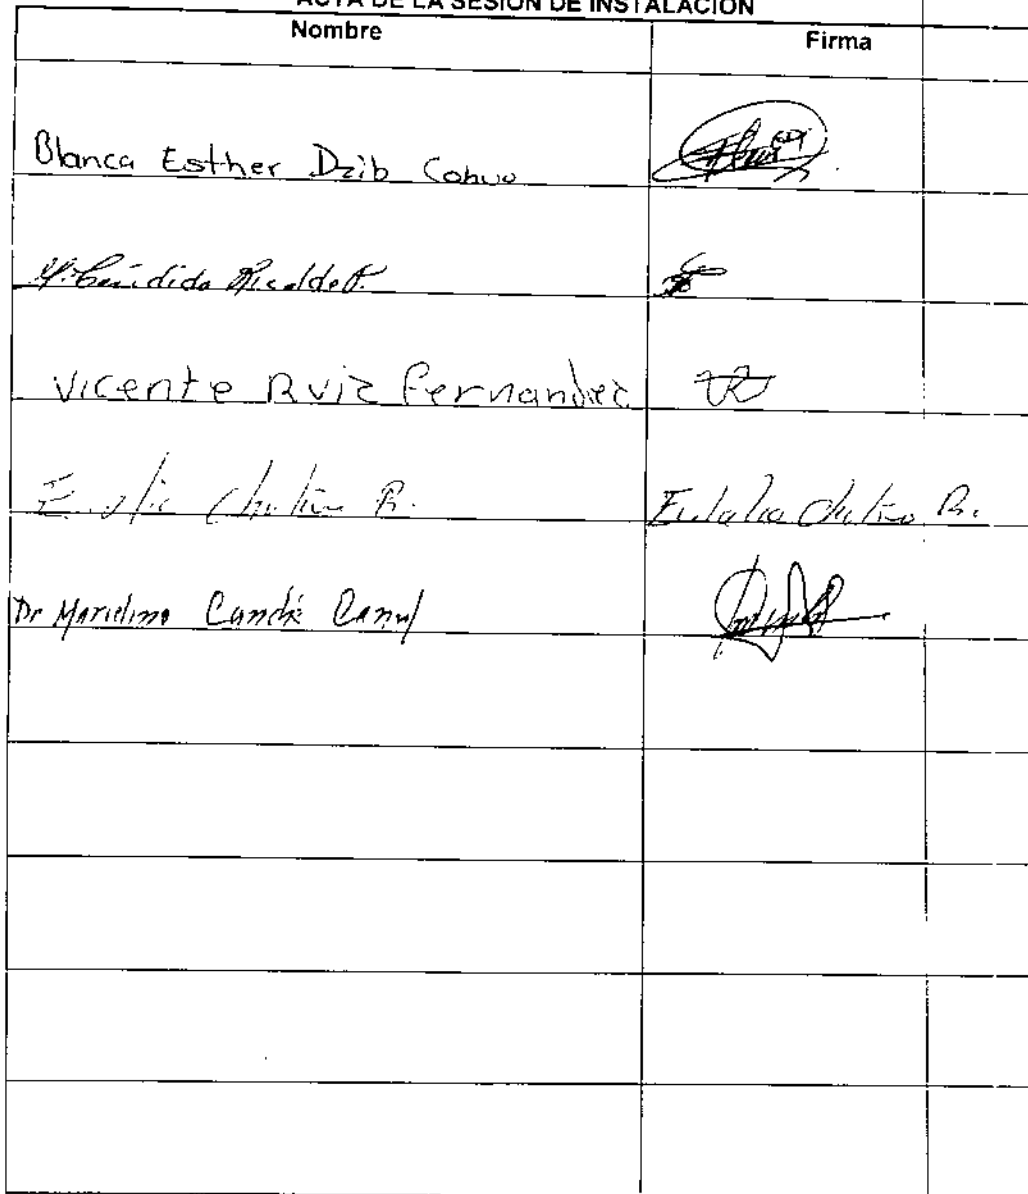 ACTA DE LA SESIÓN DE INSTALACIÓN
Nombre Firma
Blanca Esther Dzib Cohuo
Ma. Cándida Ricalde
Vicente Ruiz fernandez
Chulim R. Eulalia Chulim R.
Dr Canché Canul